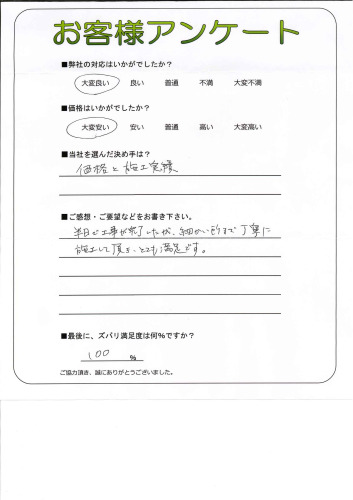 お客様アンケート
■弊社の対応はいかがでしたか？
大変良い 良い 普通 不満 大変不満
■価格はいかがでしたか？
大変安い 安い 普通 高い 大変高い
■当社を選んだ決め手は？
価格と施工実績
■ご感想・ご要望などをお書き下さい。
半日で工事が完了したが、細かい所まで丁寧に
施工して頂き、とても満足です。
■最後に、ズバリ満足度は何%ですか？
100 %
ご協力頂き、誠にありがとうございました。